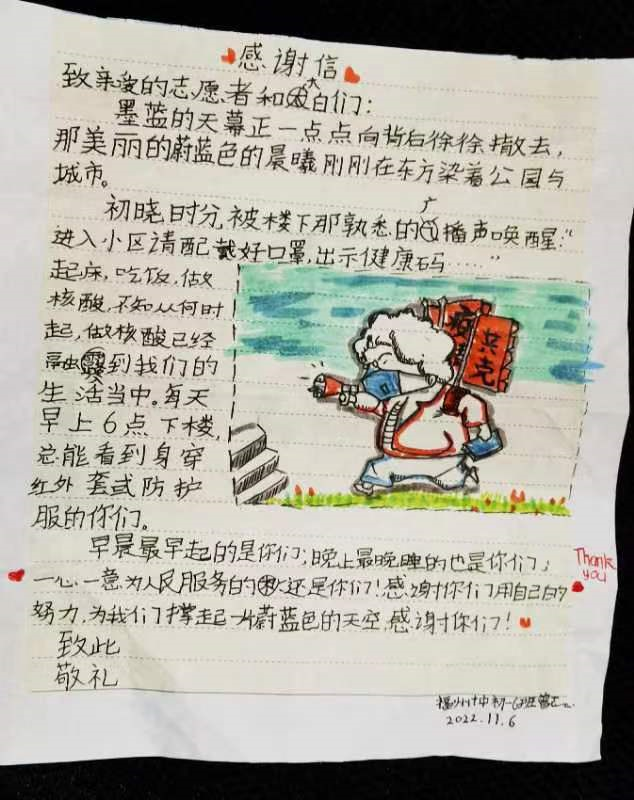 感谢信
致亲爱的志愿者和大白们：
墨蓝的天幕正一点点向背后徐徐撤去，
那美丽的蔚蓝色的晨曦刚刚在东方染着公园与
城市。
初晓时分，被楼下那熟悉的广播声唤醒：“
进入小区请配戴好口罩，出示健康码……”
起床，吃饭，做
核酸，不知从何时
起，做核酸已经
融到我们的
生活当中。每天
早上6点下楼，
总能看到身穿
红外套或防护
服的你们。
早晨最早起的是你们；晚上最晚睡的也是你们；
一心一意为人民服务的还是你们！感谢你们用自己的
努力，为我们撑起一片蔚蓝色的天空，感谢你们！
致此
敬礼
Thank
you
共克
2022.11.6